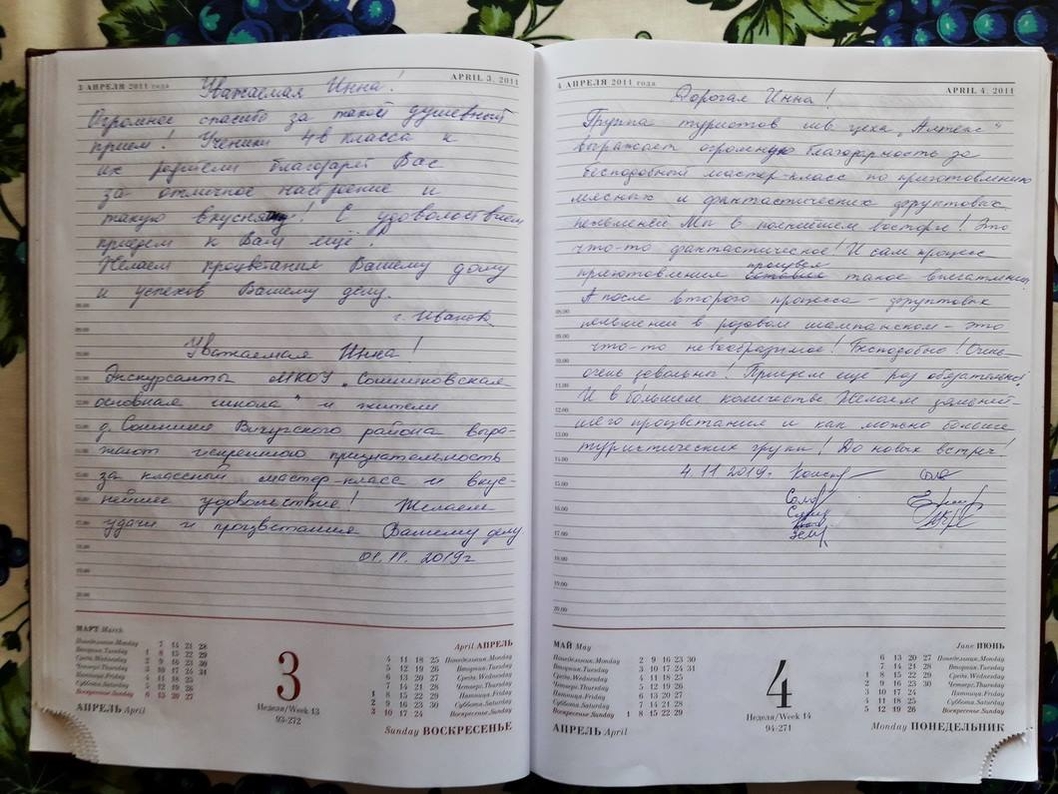 3 АПРЕЛЯ 2011 года
APRIL 3, 2011
Уважаемая Инна!
Огромное спасибо за такой душевный
прием! Ученики 4в класса и
их родители благодарят Вас
за отличное настроение и
такую вкусняшку! С удовольствием
приедем к Вам ещё!
Желаем процветания Вашему дому
и успехов Вашему делу.
г. Иваново
Уважаемая Инна!
Экскурсанты МКОУ „Сошниковская
основная школа" и жители
д. Сошники Вичугского района выра-
жают искреннюю признательность
за классный мастер-класс и вкус-
нейшее удовольствие! Желаем
удачи и процветания Вашему делу
01.11. 2019г
08.00
09.00
10.00
11.00
12.00
13.00
14.00
15.00
16.00
17.00
18.00
19.00
20.00
МАРТ March
Понедельник.Monday 7 14 21 28
Вторник.Tuesday 1 8 15 22 29
Среда.Wednesday 2 9 16 23 30
Четверг.Thursday 3 10 17 24 31
Пятница.Friday 4 11 18 25
Суббота.Saturday 5 12 19 26
Воскресенье.Sunday 6 13 20 27
АПРЕЛЬ April
3
Неделя/Week 13
93-272
April АПРЕЛЬ
4 11 18 25 Понедельник.Monday
5 12 19 26 Вторник.Tuesday
6 13 20 27 Среда.Wednesday
7 14 21 28 Четверг.Thursday
1 8 15 22 29 Пятница.Friday
2 9 16 23 30 Суббота.Saturday
3 10 17 24 Воскресенье.Sunday
Sunday ВОСКРЕСЕНЬЕ
4 АПРЕЛЯ 2011 года
APRIL 4, 2011
Дорогая Инна!
Группа туристов шв. цеха „Алтекс"
выражает огромную благодарность за
бесподобный мастер-класс по приготовлению
мясных и фантастических фруктовых
пельменей. Мы в полнейшем восторге! Это
что-то фантастическое! И сам процесс
приготовления произвел такое впечатление,
А после второго процесса - фруктовых
пельменей в розовом шампанском - это
что-то невообразимое! Бесподобно! Очень-
очень довольны! Приедем ещё раз обязательно!
И в большем количестве. Желаем дальней-
шего процветания и как можно больше
туристических групп! До новых встреч!
4.11 2019г.
08.00
09.00
10.00
11.00
12.00
13.00
14.00
15.00
16.00
17.00
18.00
19.00
20.00
МАЙ May
Понедельник.Monday 2 9 16 23 30
Вторник.Tuesday 3 10 17 24 31
Среда.Wednesday 4 11 18 25
Четверг.Thursday 5 12 19 26
Пятница.Friday 6 13 20 27
Суббота.Saturday 7 14 21 28
Воскресенье.Sunday 1 8 15 22 29
АПРЕЛЬ April
4
Неделя/Week 14
94-271
June ИЮНЬ
6 13 20 27 Понедельник.Monday
7 14 21 28 Вторник.Tuesday
1 8 15 22 29 Среда.Wednesday
2 9 16 23 30 Четверг.Thursday
3 10 17 24 Пятница.Friday
4 11 18 25 Суббота.Saturday
5 12 19 26 Воскресенье.Sunday
Monday ПОНЕДЕЛЬНИК